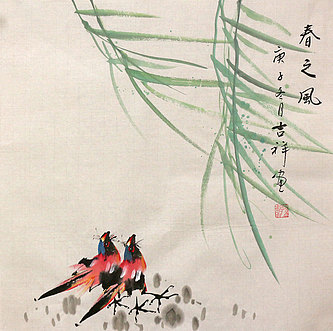 春之風
庚子冬月吉祥畫